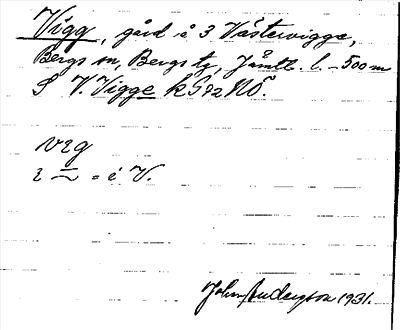 Vigg, gård å 3 Västervigge,
Bergs sn, Bergs tg, Jämtl. l. – 500 m
S V. Vigge k 592 NÖ.
vig
i = i V.
John Anderson 1931.